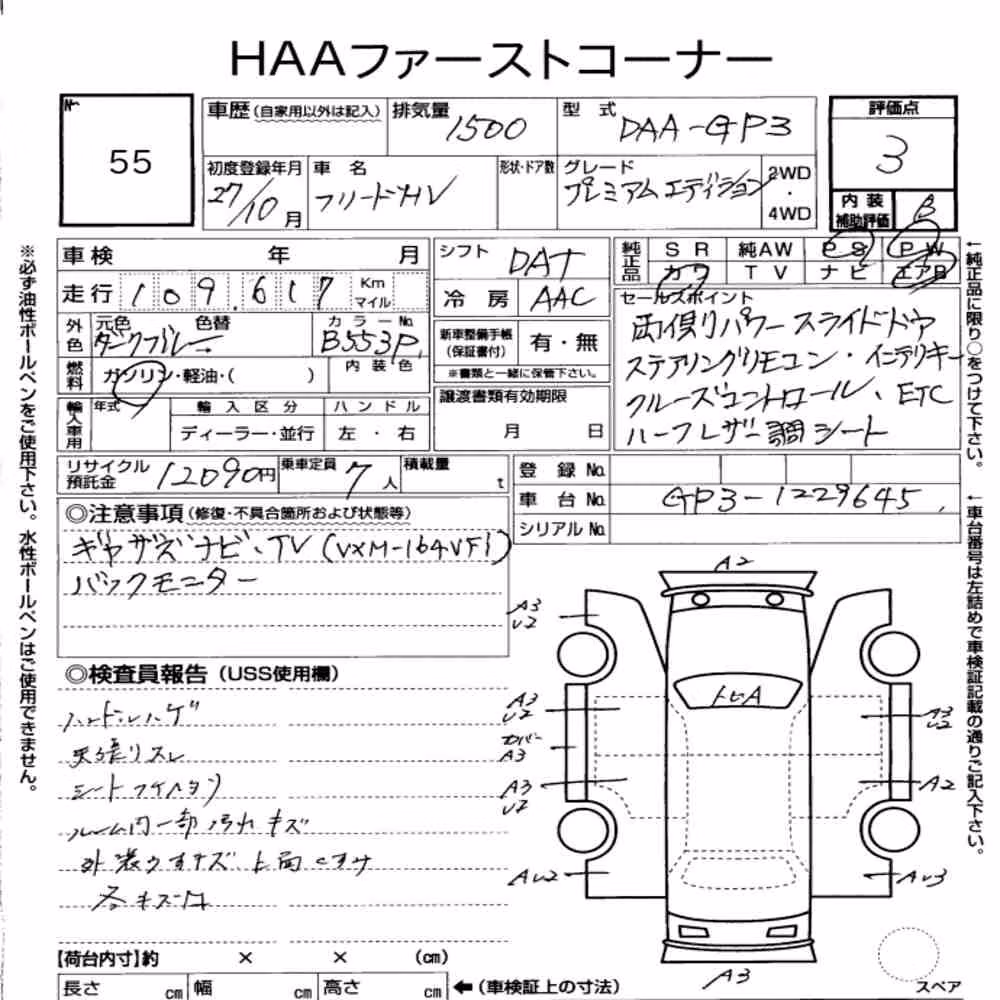 HAAファーストコーナー
№
55
車歴 (自家用以外は記入)
排気量
1500
型 式
DAA-GP3
評価点
3
初度登録年月
27/10月
車 名
フリードHV
形状・ドア数
グレード
プレミアムエディション
2WD
・
4WD
内 装
補助評価
B
車検 年 月
走行 109,617 Km
マイル
シフト
DAT
冷 房
AAC
純正品
SR 純AW PS PW
カワ TV ナビ エアB
外色
元色 色替
ダークブルー
カラーNo.
B553P
内 装 色
燃料
ガソリン・軽油・( )
新車整備手帳
(保証書付)
有・無
※書類と一緒に保管下さい。
セールスポイント
両側パワースライドドア
ステアリングリモコン・インテリキー
クルーズコントロール、ETC
ハーフレザー調シート
輸入車用
年式
輸 入 区 分
ディーラー・並行
ハ ン ド ル
左 ・ 右
譲渡書類有効期限
月 日
リサイクル
預託金
12090円
乗車定員
7人
積載量
t
登 録 No.
車 台 No.
GP3-1229645
シリアル No.
◎注意事項(修復・不具合箇所および状態等)
ギャザズナビ・TV(VXM-164VFi)
バックモニター
◎検査員報告(USS使用欄)
ハンドルハゲ
天張リスレ
シート
ルーム内一部汚れキズ
外装うすキズ 上面くすみ
各キズ凹
A2
A3
U2
トビA
A3
U2
カバー
A3
A3
U2
AU2
A3
U2
A2
AU3
A3
スペア
【荷台内寸】約 × × (cm)
長さ cm 幅 cm 高さ cm
←(車検証上の寸法)
※必ず油性ボールペンをご使用下さい。水性ボールペンはご使用できません。
←純正品に限り○をつけて下さい。
←車台番号は左詰めで車検証記載の通りご記入下さい。